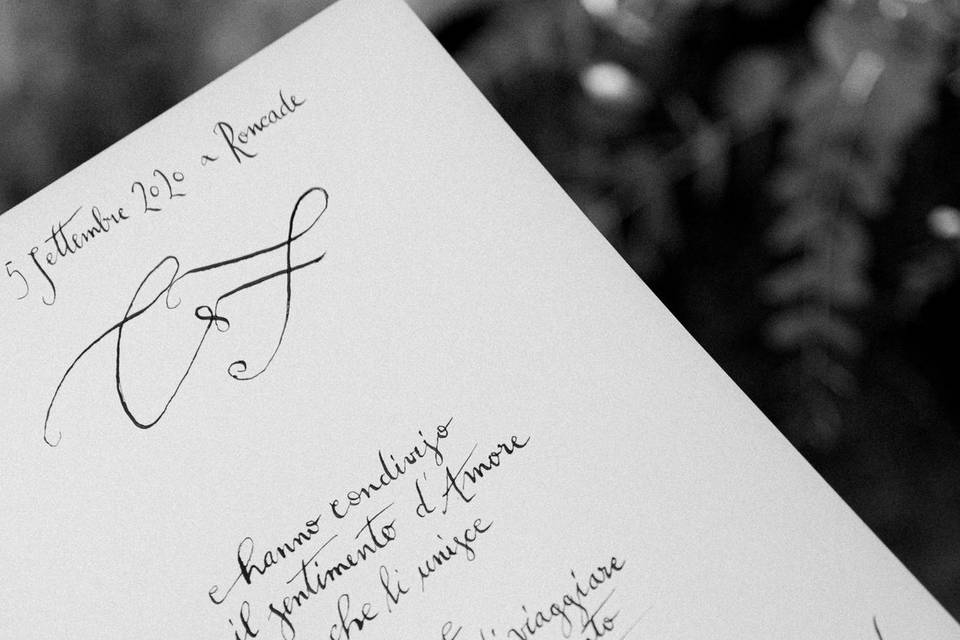 5 Settembre 2020 a Roncade
&
e hanno condiviso
il sentimento d'Amore
che li unisce
di viaggiare